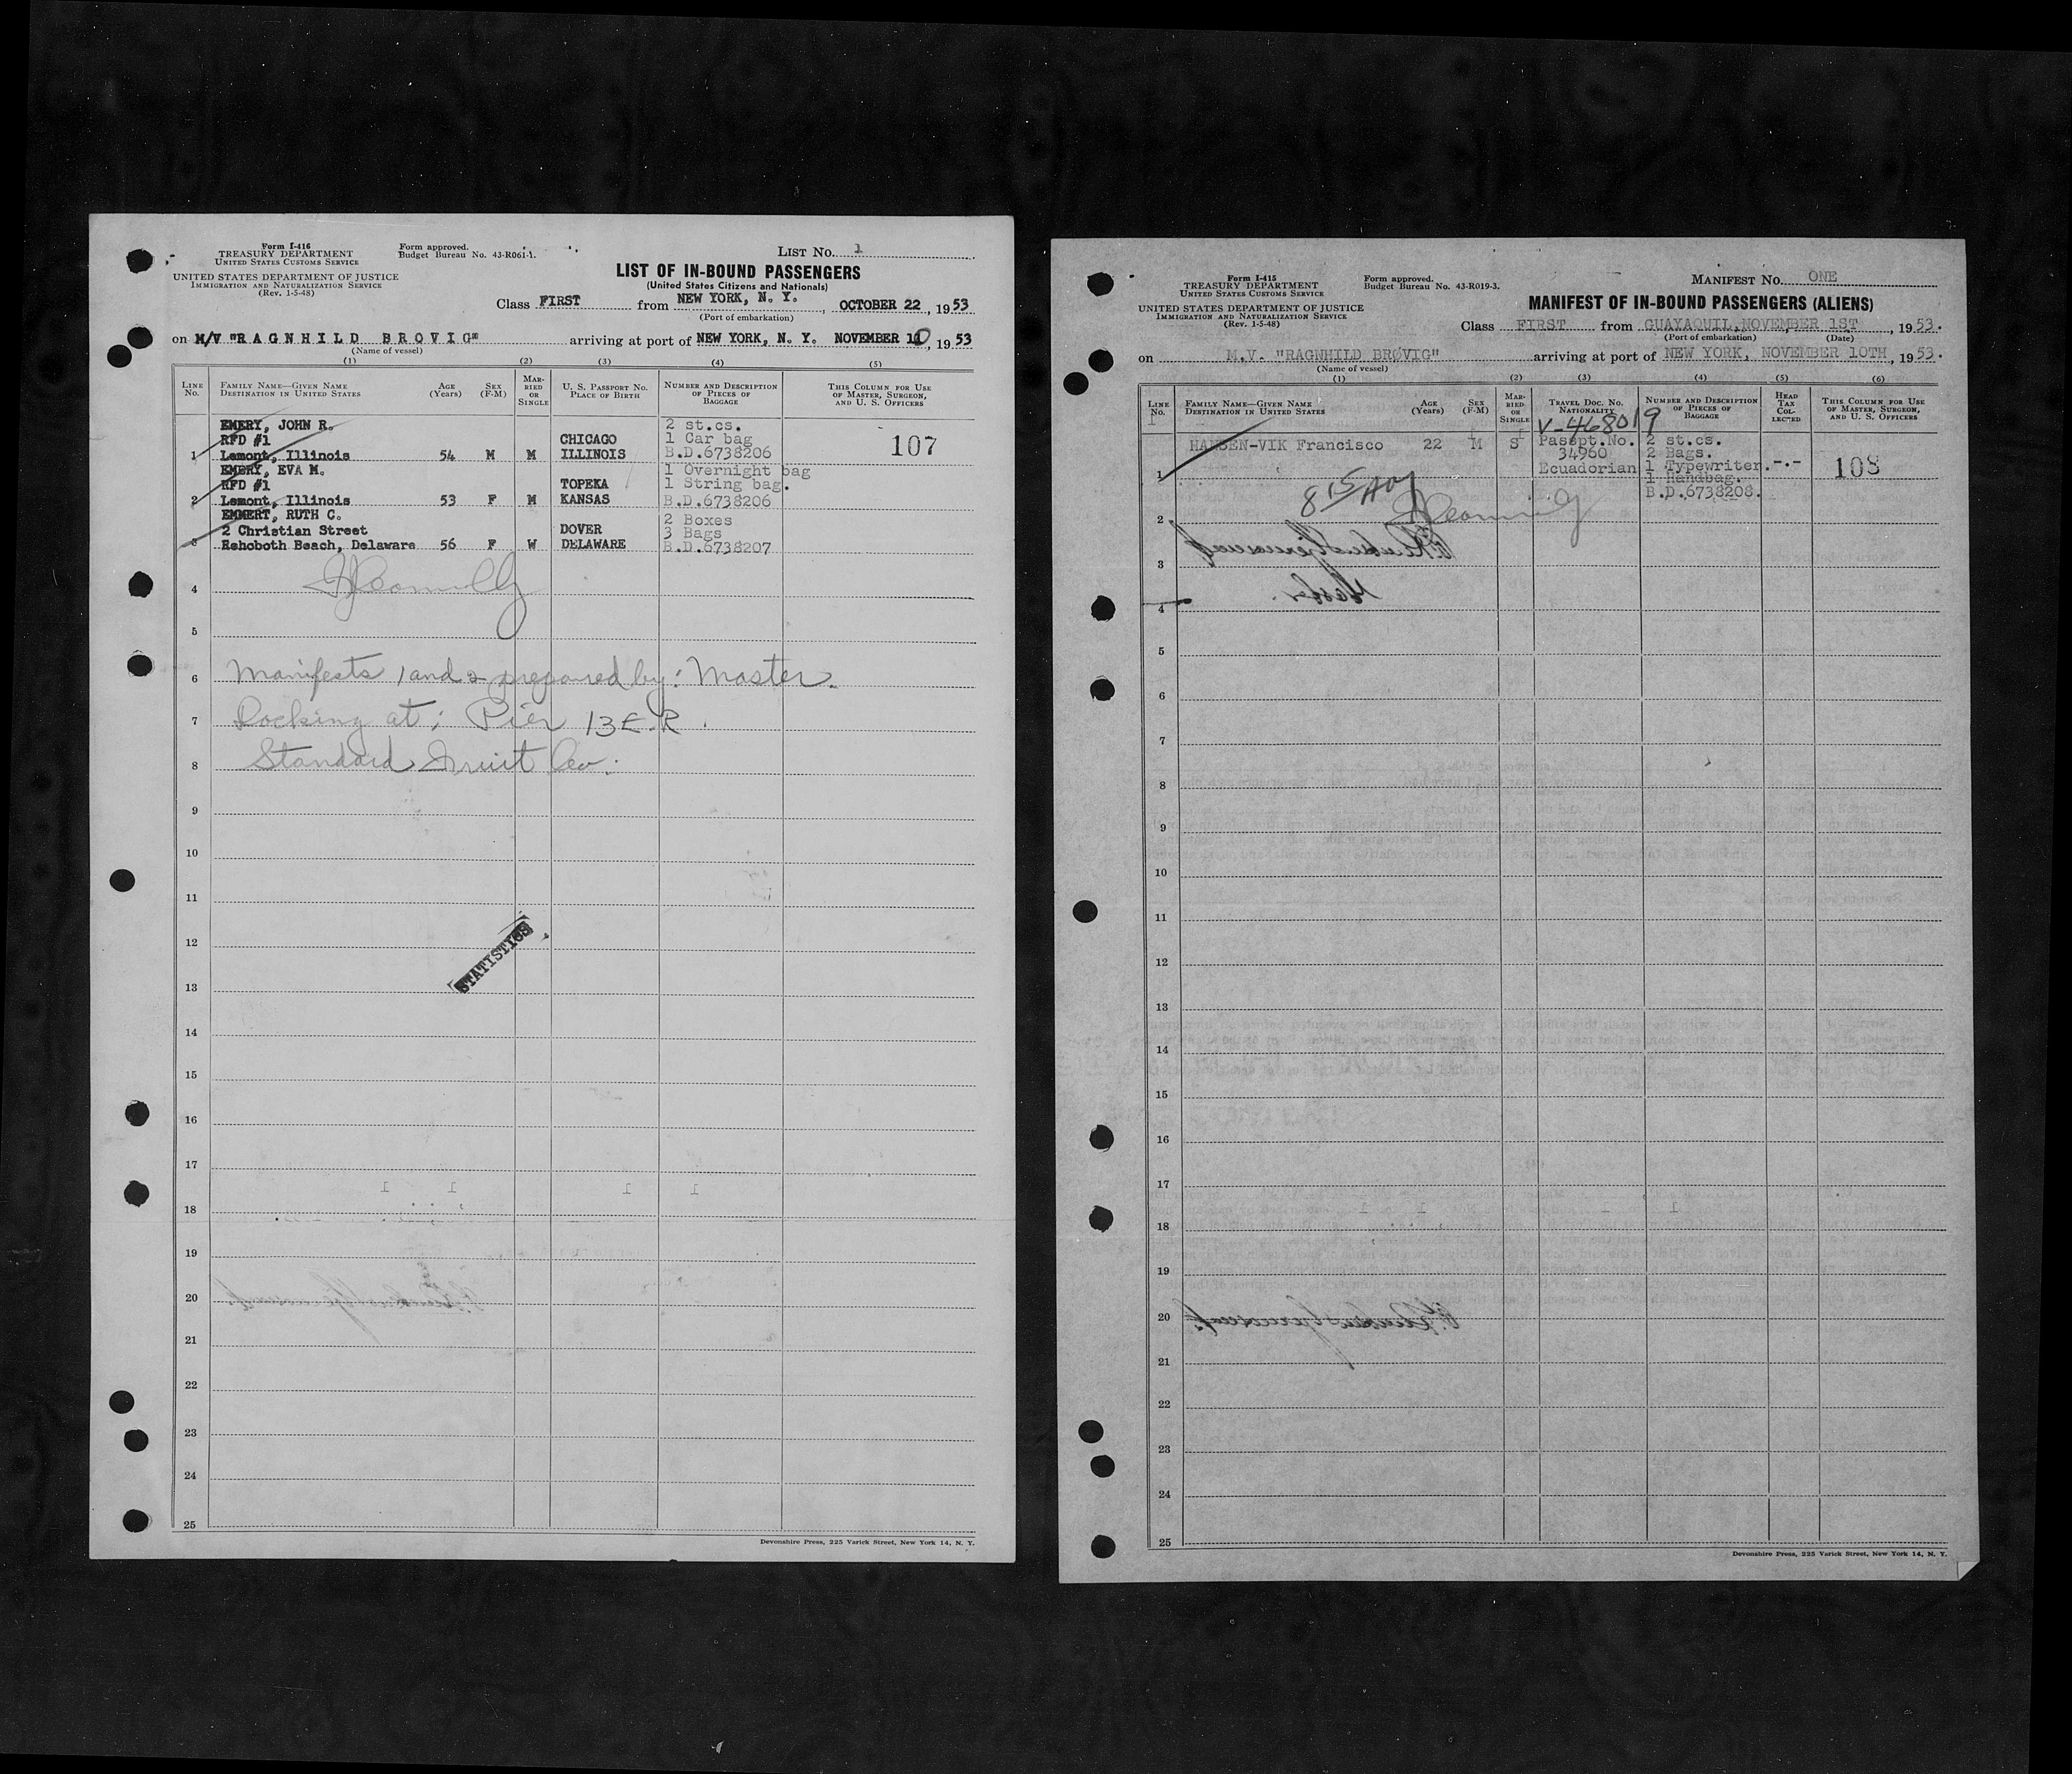 Form I-416
TREASURY DEPARTMENT
UNITED STATES CUSTOMS SERVICE
UNITED STATES DEPARTMENT OF JUSTICE
IMMIGRATION AND NATURALIZATION SERVICE
(Rev. 1-5-48)
Form approved.
Budget Bureau No. 43-R061-1.
LIST No. 1
LIST OF IN-BOUND PASSENGERS
(United States Citizens and Nationals)
Class FIRST from NEW YORK, N. Y., OCTOBER 22, 1953
(Port of embarkation)
on M/V "RAGNHILD BROVIG" arriving at port of NEW YORK, N. Y. NOVEMBER 10, 1953
(Name of vessel)
(1) (2) (3) (4) (5)
LINE No. FAMILY NAME—GIVEN NAME DESTINATION IN UNITED STATES AGE (Years) SEX (F-M) MARRIED OR SINGLE U. S. PASSPORT NO. PLACE OF BIRTH NUMBER AND DESCRIPTION OF PIECES OF BAGGAGE THIS COLUMN FOR USE OF MASTER, SURGEON, AND U. S. OFFICERS
EMERY, JOHN R. 2 st.cs.
RFD #1 CHICAGO 1 Car bag 107
1 Lemont, Illinois 54 M M ILLINOIS B.D.6738206
EMERY, EVA M. 1 Overnight bag
RFD #1 TOPEKA 1 String bag.
2 Lemont, Illinois 53 F M KANSAS B.D.6738206
EMMERT, RUTH C. 2 Boxes
2 Christian Street DOVER 3 Bags
3 Rehoboth Beach, Delaware 56 F W DELAWARE B.D.6738207
4
5
6 Manifests 1 and 2 prepared by: Master.
7 Docking at: Pier 13 E.R.
8 Standard Fruit Co.
9
10
11
12
STATISTICS
13
14
15
16
17
18
19
20
21
22
23
24
25
Devonshire Press, 225 Varick Street, New York 14, N. Y.
Form I-415
TREASURY DEPARTMENT
UNITED STATES CUSTOMS SERVICE
UNITED STATES DEPARTMENT OF JUSTICE
IMMIGRATION AND NATURALIZATION SERVICE
(Rev. 1-5-48)
Form approved.
Budget Bureau No. 43-R019-3.
MANIFEST No. ONE
MANIFEST OF IN-BOUND PASSENGERS (ALIENS)
Class FIRST from GUAYAQUIL, NOVEMBER 1ST, 1953.
(Port of embarkation) (Date)
on M.V. "RAGNHILD BRØVIG" arriving at port of NEW YORK, NOVEMBER 10TH, 1953.
(Name of vessel)
(1) (2) (3) (4) (5) (6)
LINE No. FAMILY NAME—GIVEN NAME DESTINATION IN UNITED STATES AGE (Years) SEX (F-M) MARRIED OR SINGLE TRAVEL DOC. NO. NATIONALITY NUMBER AND DESCRIPTION OF PIECES OF BAGGAGE HEAD TAX COLLECTED THIS COLUMN FOR USE OF MASTER, SURGEON, AND U. S. OFFICERS
V-468019
HANSEN-VIK Francisco 22 M S Passpt.No. 2 st.cs.
34960 2 Bags.
1 Ecuadorian 1 Typewriter. -.- 108
1 Handbag.
B.D.6738208.
8 15 AM
2
3
4
5
6
7
8
9
10
11
12
13
14
15
16
17
18
19
20
21
22
23
24
25
Devonshire Press, 225 Varick Street, New York 14, N. Y.